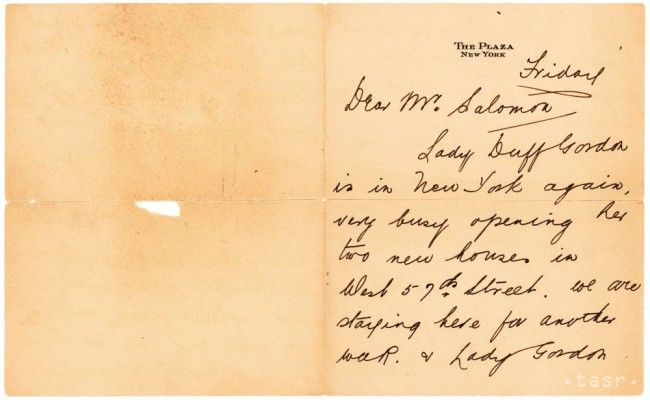 THE PLAZA
NEW YORK
Friday
Dear Mr. Salomon
Lady Duff Gordon
is in New York again,
very busy opening her
two new houses in
West 57th Street. we are
staying here for another
week. & Lady Gordon
.tasr.